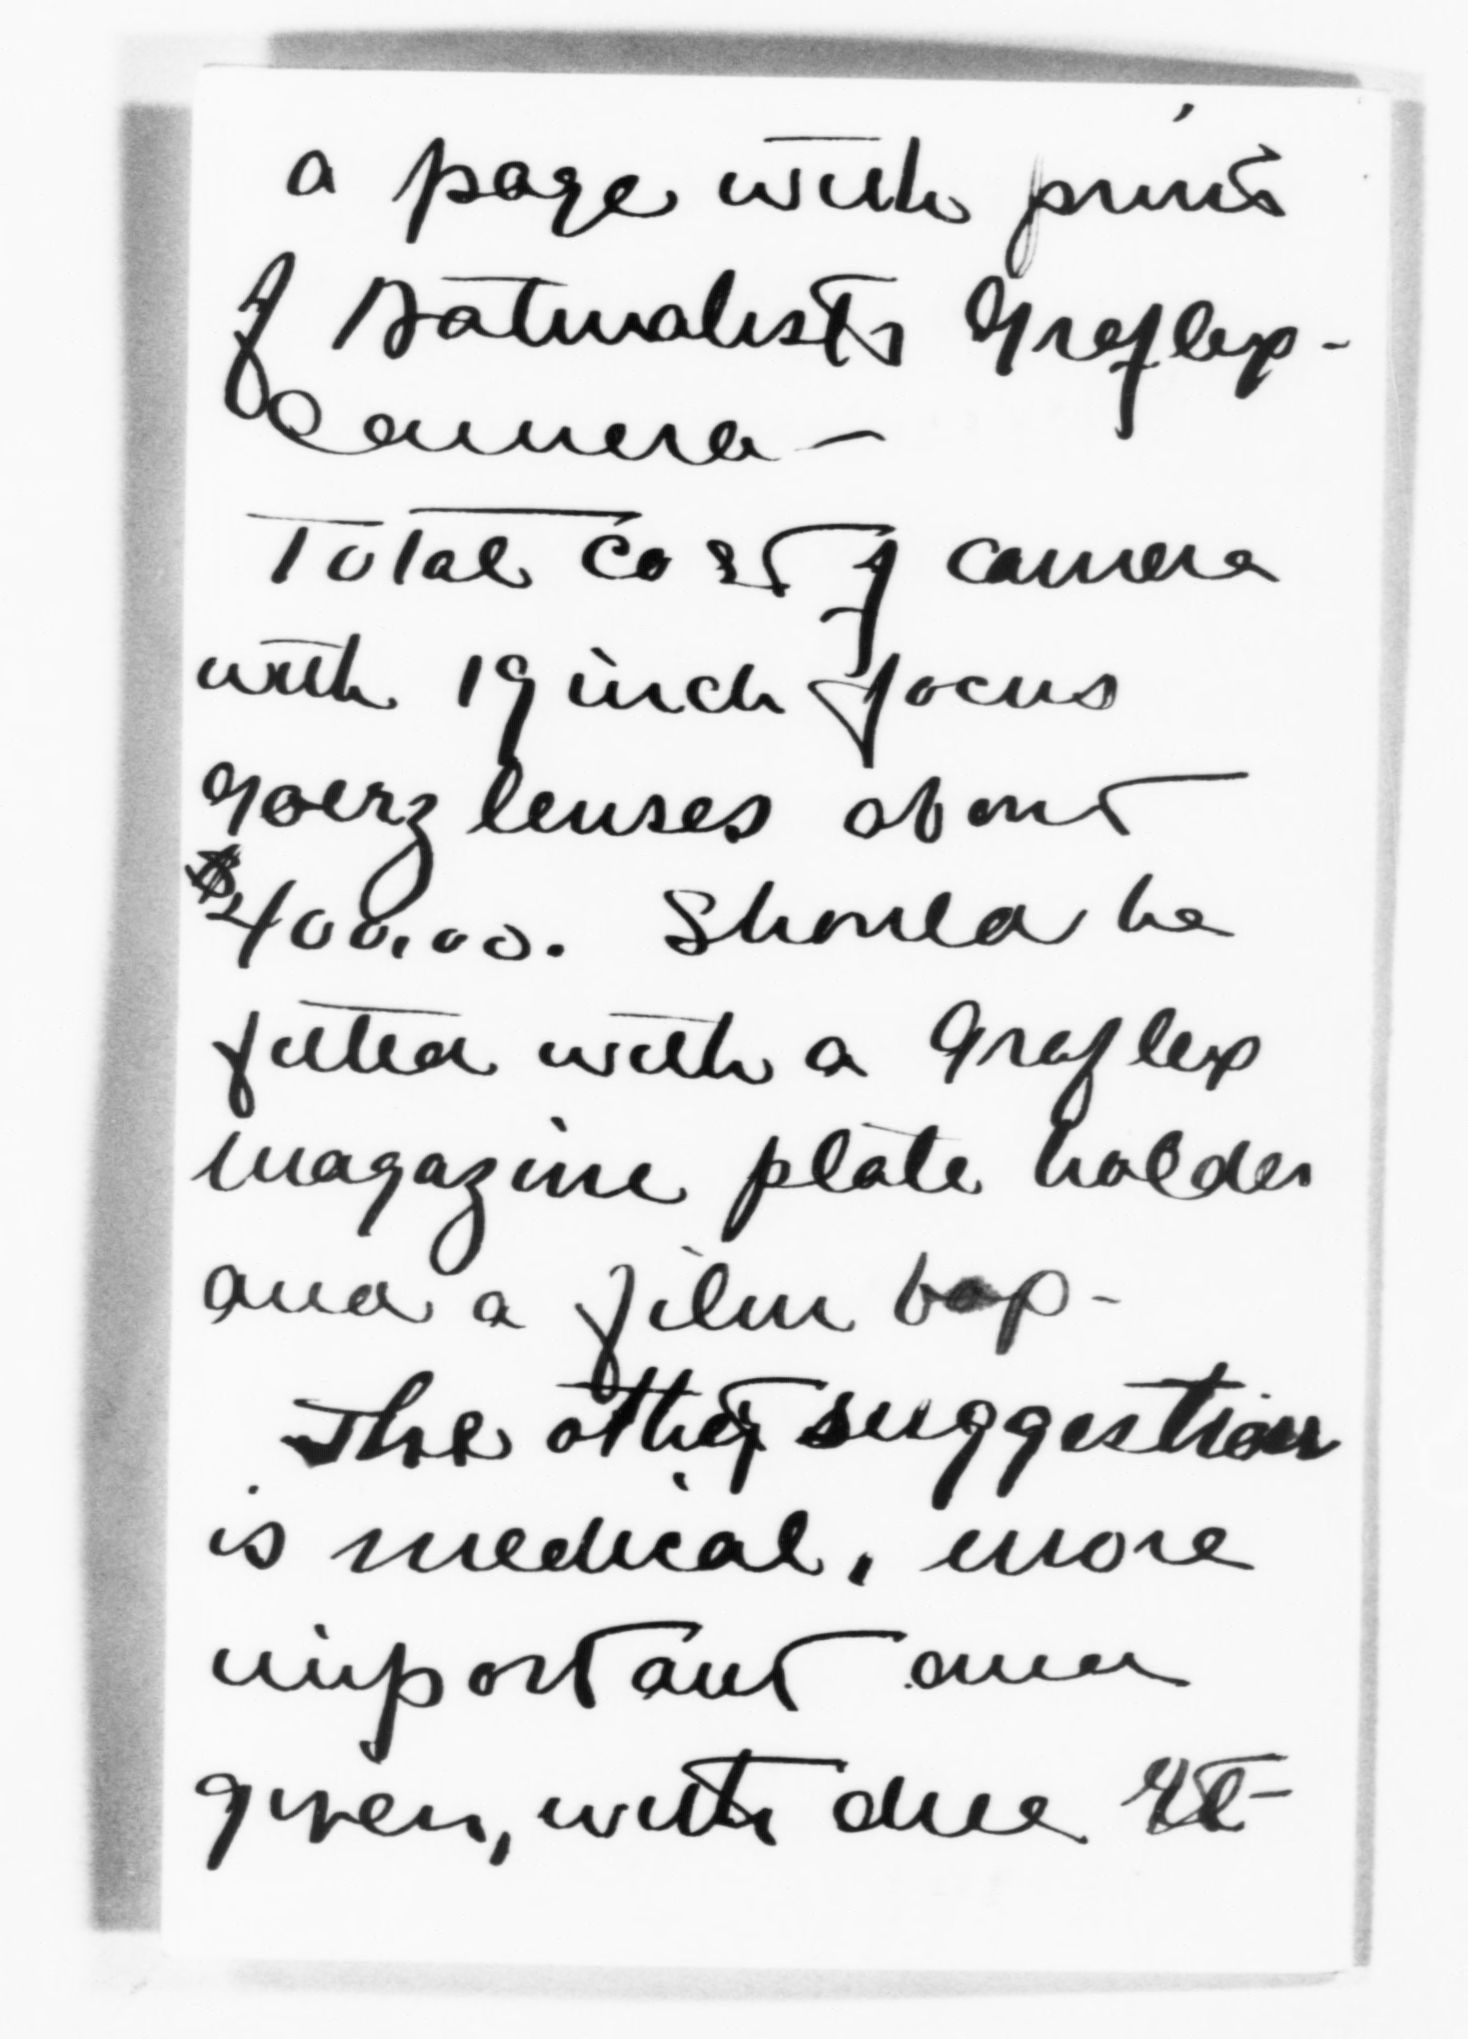 a page with prints
of Naturalists Graflex-
Camera —
Total cost of camera
with 19 inch focus
Goerz lenses about
$400.00. Should be
fitted with a Graflex
magazine plate holder
and a film box-
The other suggestion
is medical, more
important and
given, with due re-